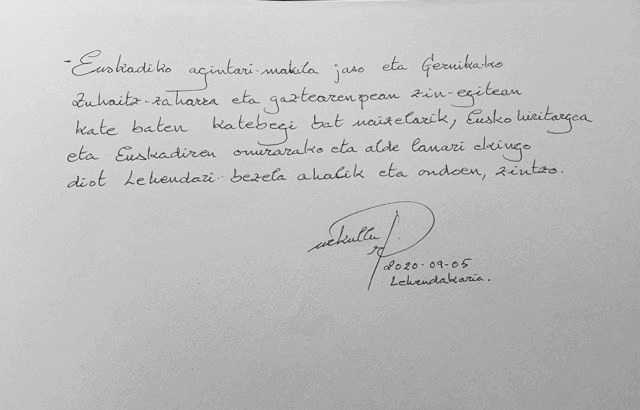 - Euskadiko agintari-makila jaso eta Gernikako
Zuhaitz-zaharra eta gaztearenpean zin-egitean
kate baten katebegi bat naizelarik, Eusko hiritargoa
eta Euskadiren onurarako eta alde lanari ekingo
diot Lehendari bezela ahalik eta ondoen, zintzo.
2020-09-05
Lehendakaria.